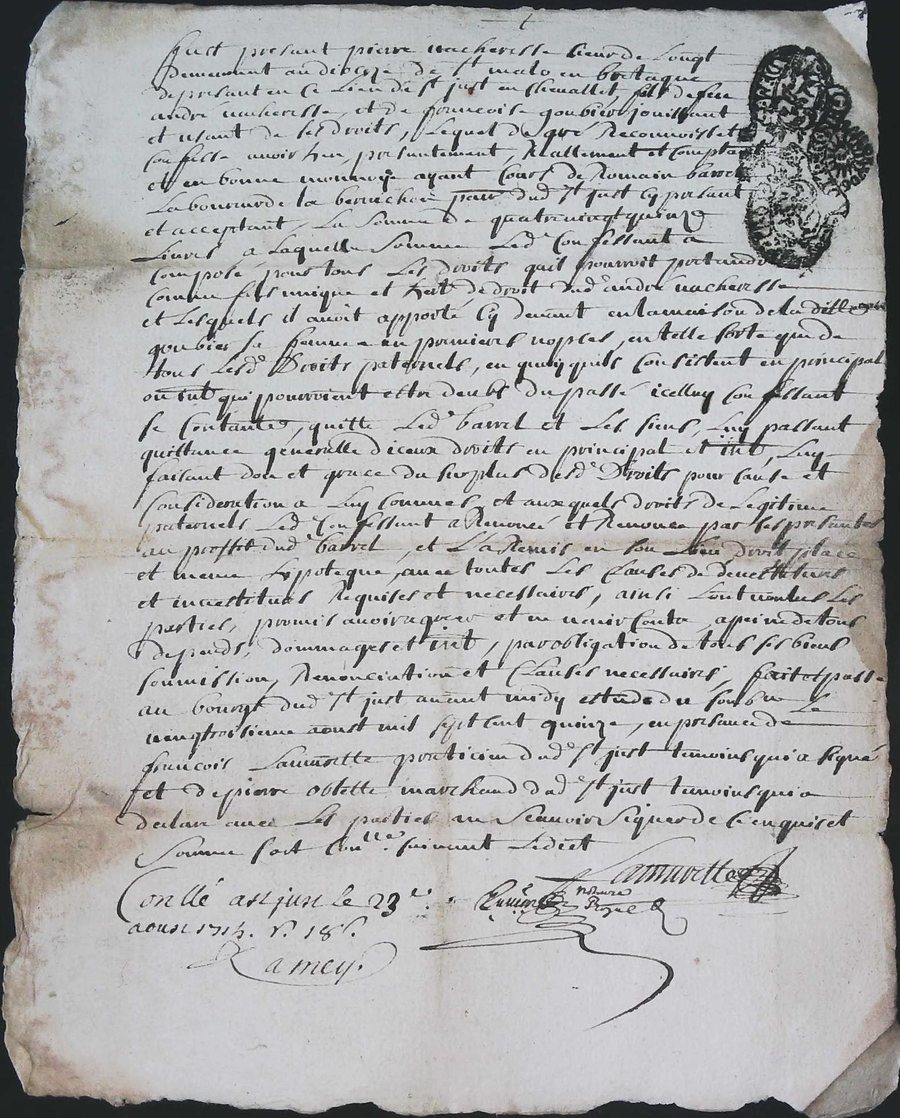 fust présant pierre vacheresse sieur de
demeurant au diocèze de St malo en bretagne
de présant en ce lieu de St just en chevallet fils de feu
andré vacheresse, et de françoise goubier jouissant
et usant de ses droits, Lequel de gré Reconnoist et
confesse avoir heu présantement, Réallement et comptant
et en bonne monnoye ayant cours de Romain barret
Laboureur de la par dud St just cy présant
et acceptant, La somme de quatrevingt quinze
Livres, a Laquelle somme Led confessant a
composé, pour tous Les droits quil pourroit prétendre
comme fils unique et de droit dud andré vacheresse
et Lesquels il avoit apporté cy devant en la maison de la dille
goubier sa femme en premiers nopces, en telle sorte que de
tous Lesd Droits paternels, en quoy quils consistent en principal
ou int qui pourroient estre deubt du passé icelluy confessant
se contante, quitte Led barret et Les siens, Luy passant
quittance généralle diceux droits en principal et int, Luy
faisant don et grace du surplus desd Droits pour cause et
considération a Luy connues, et auxquels droits de Légitime
paternels Led confessant a Renoncé et Renonce par ses présantes
au proffit dud barret, et L'a Remis en son Lieu droit place
et meme hipoteque, avec toutes Les clauses de devestitures
et investitures Requises et nécessaires, ainsi Les
parties, promis avoir agréé et ne venir contre, a peine de tous
dépends, dommages et int, par obligation de tous ses biens
soumission, Rénonciation et clauses nécessaires, fait et passé
au bourg dud St just avant midy estude du Le
vingtroisieme aoust mil sept cent quinze, en présance de
françois Lamurette praticien dud St just temoins qui a signé
et de pierre obtette marchand dud St just temoins qui a
déclaré avec Les parties ne scavoir signer de ce enquis et
sommé suivant Ledect
Lamurette
Conllé a st just le 23e
aoust 1715. R. 18s.
notaire
Royal
Ramey.